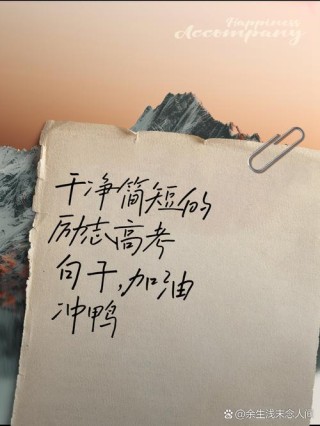 Happiness
Accompany
干净简短的
励志高考
句干,加油
冲鸭
@余生浅末念人间